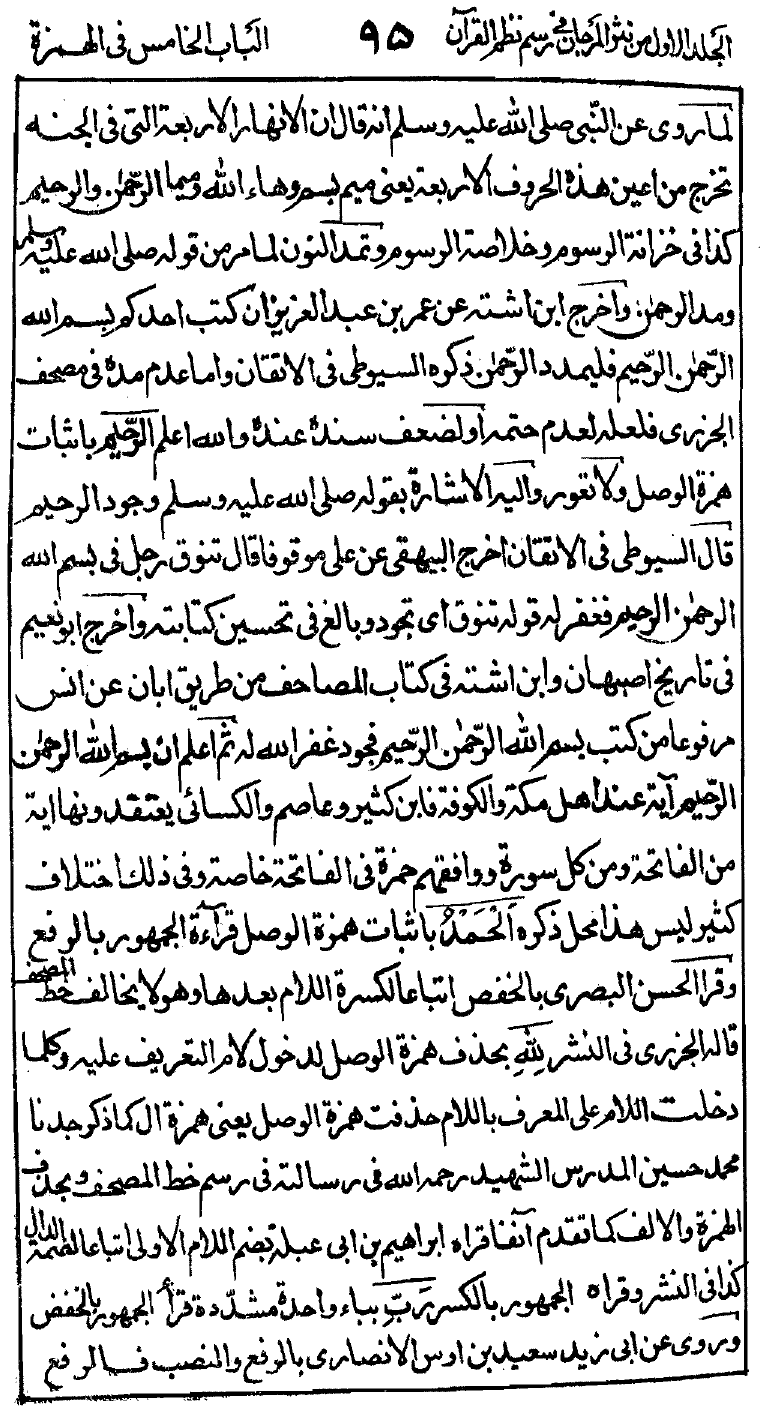 الجلد الاول من نثر المرجان في رسم نظم القرآن ۹۵ الباب الخامس فى الهمزة
لما روى عن النّبى صلى الله عليه وسلم انه قال ان الانهار الاربعة التى فى الجنه
تخرج من اعين هذه الحروف الاربعة يعنى ميم بسم وهاء الله وميما الرحمٰن والرحيم
كذا فى خزانة الرسوم وخلاصة الرسوم وتمد النون لما مر من قوله صلى الله عليه وسلم
ومد الرحمٰن واخرج ابن اشته عن عمر بن عبد العزيز ان كتب احدكم بسم الله
الرّحمٰن الرّحيم فليمدد الرّحمٰن ذكره السيوطى فى الاتقان واما عدم مده فى مصحف
الجزرى فلعله لعدم حتمه او لضعف سنده عنده والله اعلم الرّحيم باثبات
همزة الوصل ولا تعور واليه الاشارة بقوله صلى الله عليه وسلم وجود الرحيم
قال السيوطى فى الاتقان اخرج البيهقى عن على موقوفا قال تنوق رجل فى بسم الله
الرحمٰن الرحيم فغفر له قوله تنوق اى تجود وبالغ فى تحسين كتابته واخرج ابو نعيم
فى تاريخ اصبهان وابن اشته فى كتاب المصاحف من طريق ابان عن انس
مرفوعا من كتب بسم الله الرّحمٰن الرّحيم فجود غفر الله له ثم اعلم ان بسم الله الرحمٰن
الرّحيم آية عند اهل مكة والكوفة فابن كثير وعاصم والكسائى يعتقدونها اية
من الفاتحة ومن كل سورة ووافقهم حمزة فى الفاتحة خاصة وفى ذلك اختلاف
كثير ليس هذا محل ذكره اَلْحَمْدُ باثبات همزة الوصل قرآءة الجمهور بالرفع
وقرا الحسن البصرى بالخفض اتباعا لكسرة اللام بعدها وهو لا يخالف خط المصحف
قاله الجزرى فى النشر لِلّٰهِ بحذف همزة الوصل لدخول لام التعريف عليه وكلما
دخلت اللام على المعرف باللام حذفت همزة الوصل يعنى همزة ال كما ذكر جدنا
محمد حسين المدرس الشهيد رحمه الله فى رسالته فى رسم خط المصحف وبحذف
الهمزة والالف كما تقدم آنفا قراه ابراهيم بن ابى عبلة بضم اللام الاولى اتباعا لضمة الدال
كذا فى النشر وقراه الجمهور بالكسر رَبِّ بباء واحدة مشدّدة قرأه الجمهور بالخفض
وروى عن ابى زيد سعيد بن اوس الانصارى بالرفع والنصب فالرفع